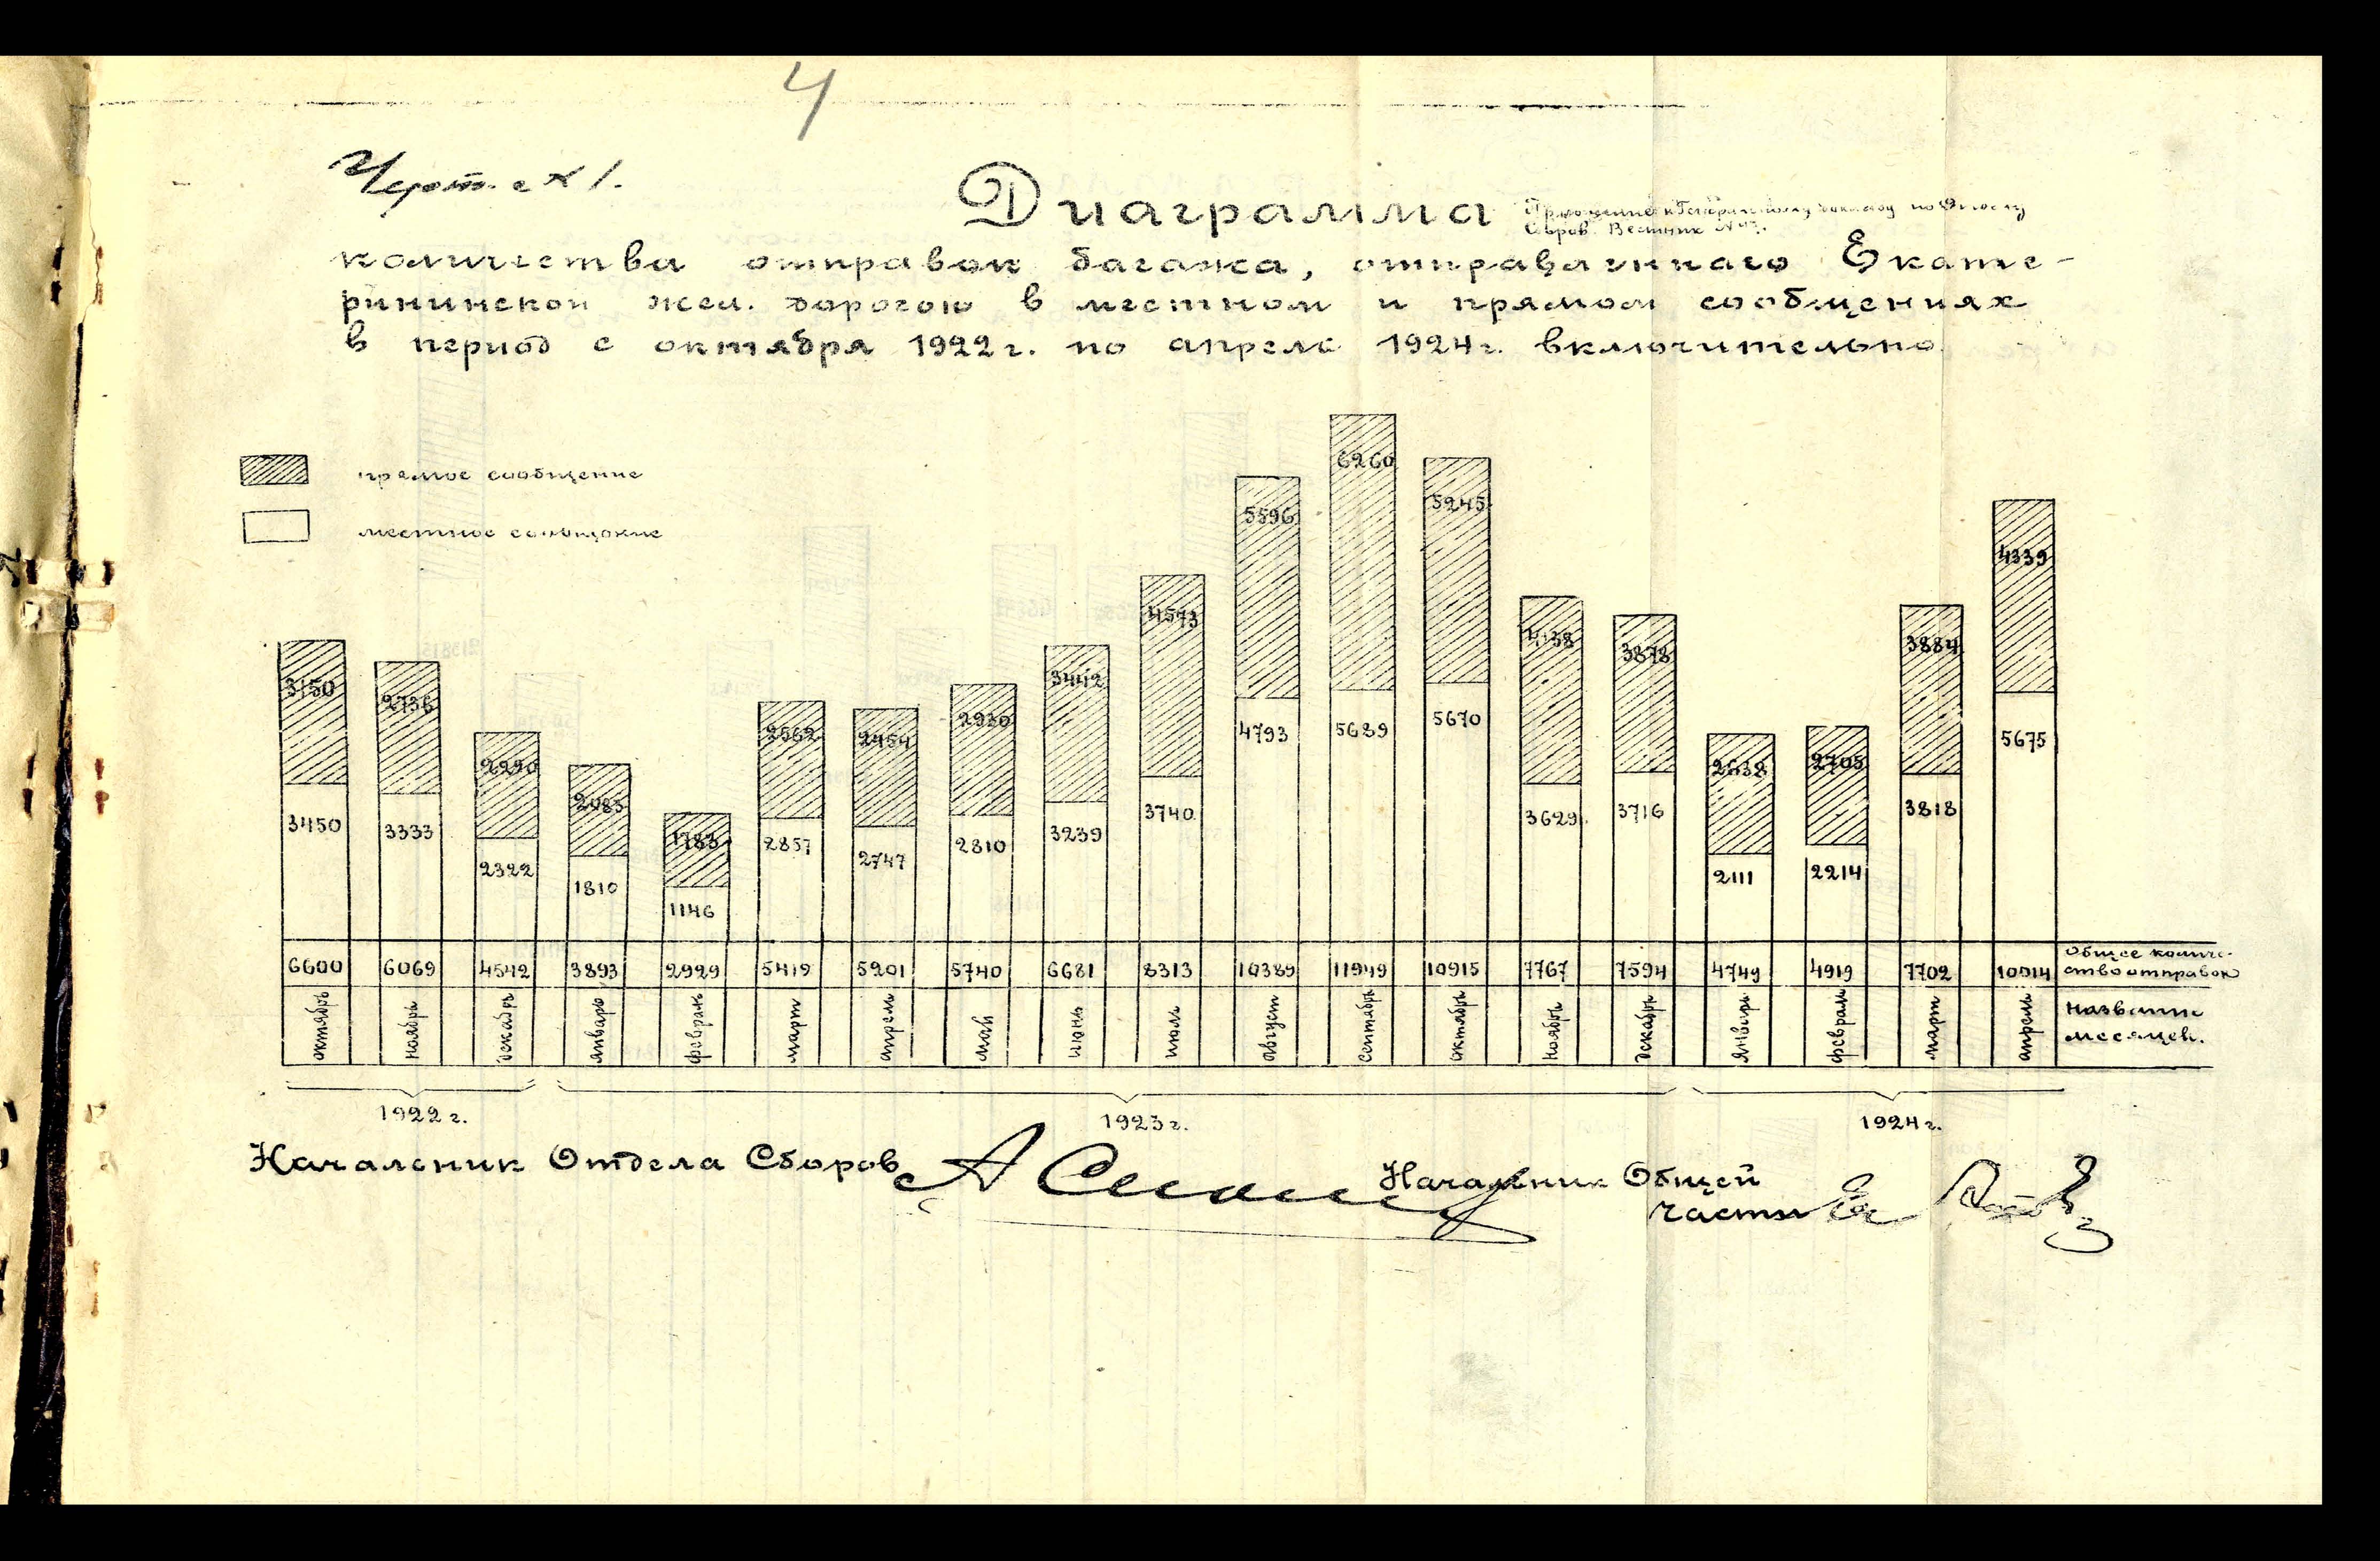 4
Черт. № 1.
Диаграмма
Сборов. Вестник №
количества отправок багажа, отправленнаго Екате-
рининской жел. дорогою в местном и прямом сообщениях
в период с октября 1922 г. по апрель 1924 г. включительно.
прямое сообщение
местное сообщение
3150 2736 2220 2083 1783 2562 2454 2930 3442 4573 5596 6260 5245 4138 3878 2638 2705 3884 4339
3450 3333 2322 1810 1146 2857 2747 2810 3239 3740 4793 5689 5670 3629 3716 2111 2214 3818 5675
6600 6069 4542 3893 2929 5419 5201 5740 6681 8313 10389 11949 10915 7767 7594 4749 4919 7702 10014 Общее количе-
ство отправок
октябрь ноябрь декабрь январь февраль март апрель май июнь июль август сентябрь октябрь ноябрь декабрь январь февраль март апрель Название
месяцев.
1922 г. 1923 г. 1924 г.
Начальник Отдела Сборов Начальник Общей
части